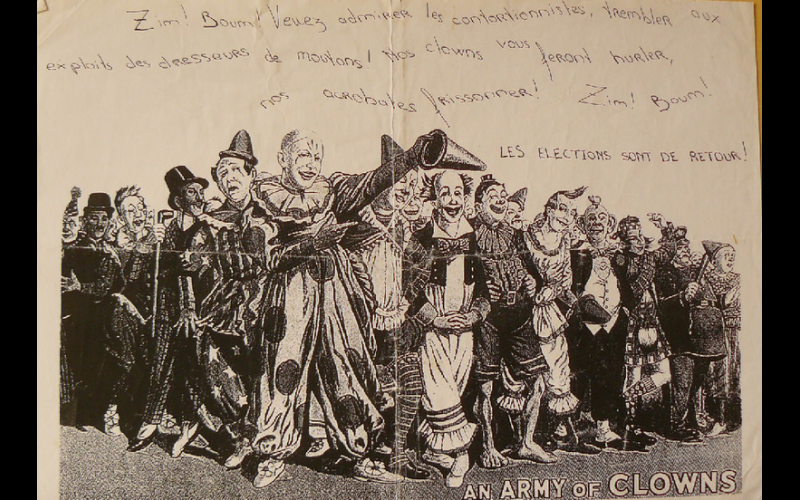 Zim! Boum! Venez admirer les contortionnistes, trembler aux
exploits des dresseurs de moutons! Nos clowns vous feront hurler,
nos acrobates frissonner! Zim! Boum!
LES ELECTIONS SONT DE RETOUR!
AN ARMY OF CLOWNS